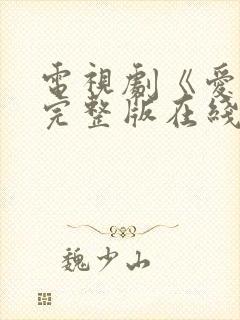 電視劇《愛
完整版在綫
魏少山